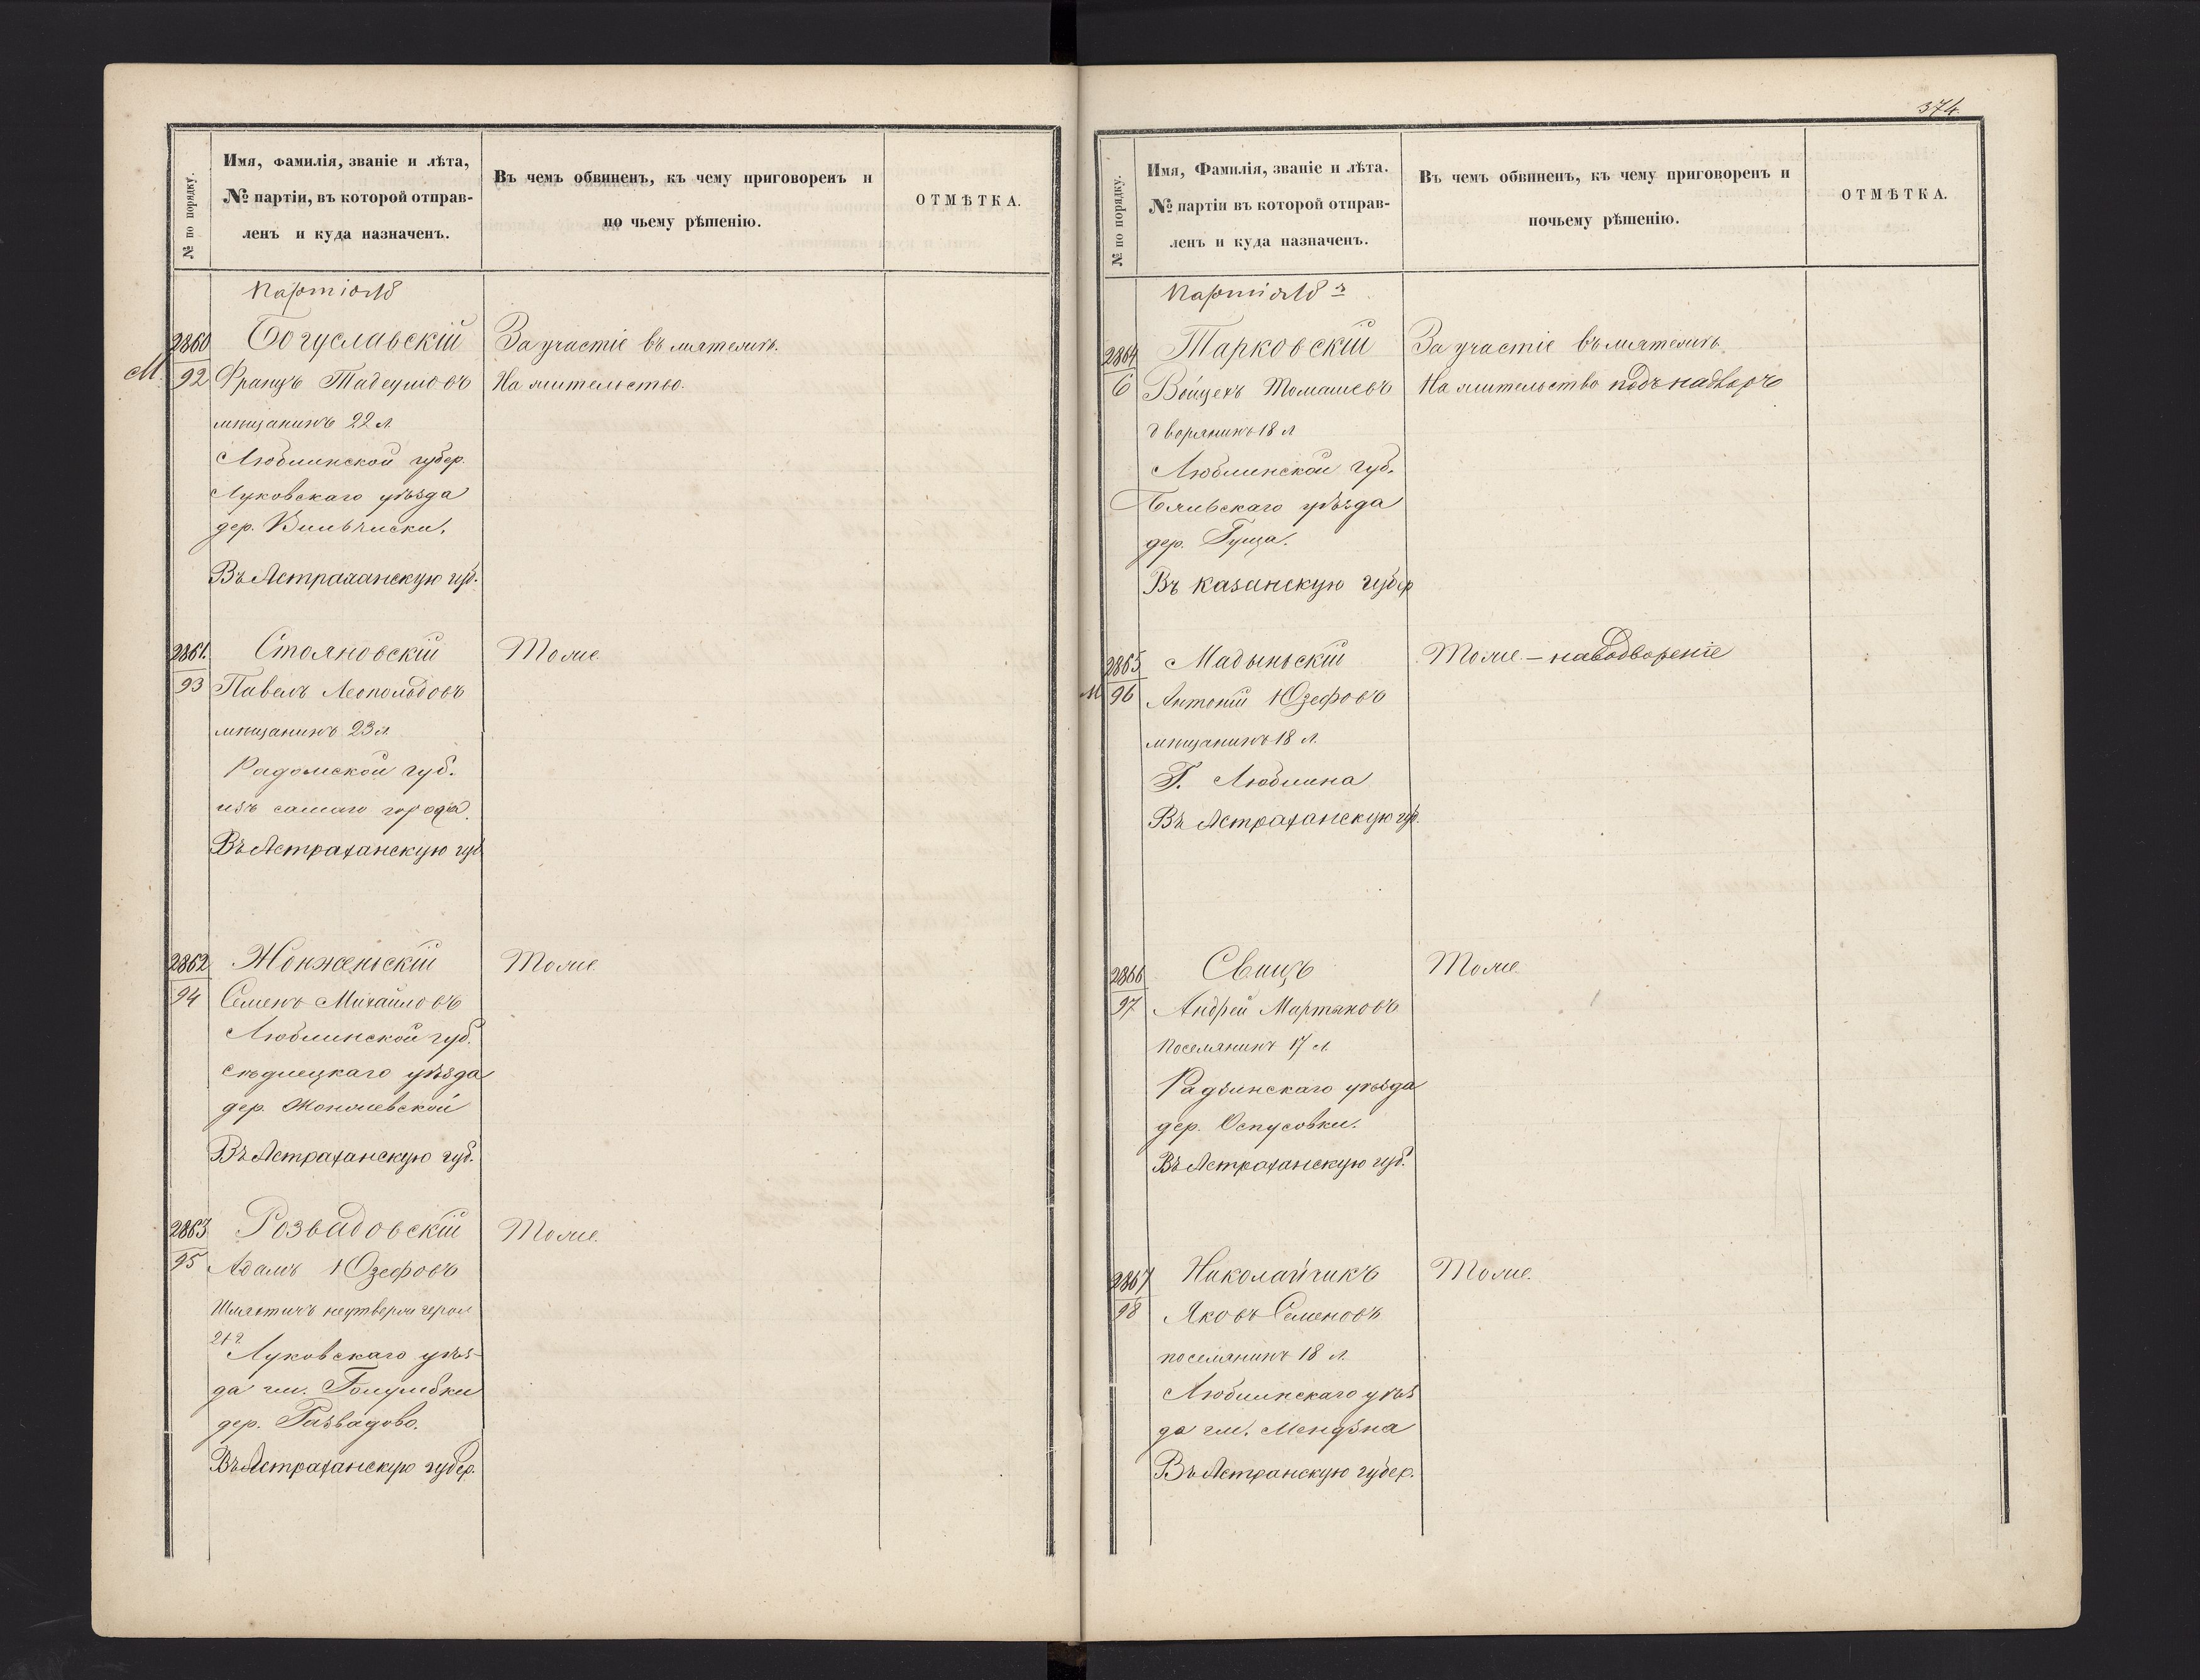 374.
№ по порядку.
Имя, Фамилія, званіе и лѣта,
№ партіи, въ которой отправ-
ленъ и куда назначенъ.
Въ чемъ обвиненъ, къ чему приговоренъ и
по чьему рѣшенію.
ОТМѢТКА.
Партія 18
2860
Богуславскій
За участіе въ мятежѣ.
М.
92
Францъ Тадеушовъ
На жительство.
мѣщанинъ 22 л
Люблинской губер.
Луковскаго уѣзда
дер. Вильчиски.
Въ Астраханскую губ.
2861.
Стояновскій
Тоже.
93
Павелъ Леопольдовъ
мѣщанинъ 23 л
Радомской губ.
изъ самаго города.
Въ Астраханскую губ
2862
Жонженьскій
Тоже.
94
Семенъ Михайловъ
Люблинской губ.
Сѣдлецкаго уѣзда
дер.
Въ Астраханскую губ.
2863
Розвадовскій
Тоже.
95
Адамъ Юзефовъ
Шляхтичъ неутвержд герол
21 г.
Луковскаго уѣз-
да гм. Голумбки
дер. Развадово.
Въ Астраханскую губер.
№ по порядку.
Имя, Фамилія, званіе и лѣта.
№ партіи въ которой отправ-
ленъ и куда назначенъ.
Въ чемъ обвиненъ, къ чему приговоренъ и
почьему рѣшенію.
ОТМѢТКА.
Партія 18 я
2864
Тарковскій
За участіе въ мятежѣ
6
Войцехъ Томашевъ
На жительство подъ надзоръ
дворянинъ 18 л
Люблинской губ.
Бяльскаго уѣзда
дер. Гуща.
Въ Казанскую губер
2865
Мадыньскій
Тоже. – на водвореніе
М
96
Антоній Юзефовъ
мѣщанинъ 18 л.
Г. Люблина
Въ Астраханскую губ.
2866
Свицъ
Тоже.
97
Андрей Мартыновъ
поселянинъ 17 л.
Радзинскаго уѣзда
дер. Оспусовки.
Въ Астраханскую губ.
2867
Николайчикъ
Тоже.
98
Яковъ Семеновъ
поселянинъ 18 л.
Люблинскаго уѣз
да гм. Мендзна
Въ Астранскую губер.